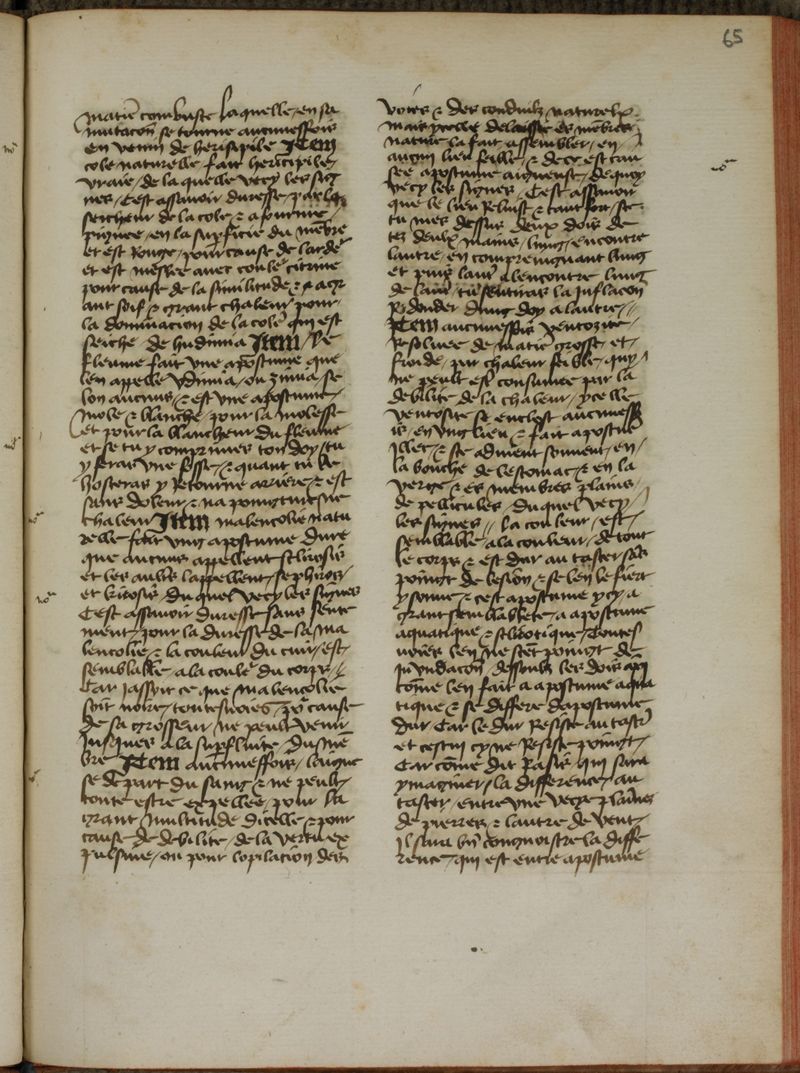 65
matie combuste laquelle en sa
mutacon se tourne aucuneffois
en venin de herisipile Item
cole naturelle fait herisipile
vraie de la quelle vecy les sig
nes Cest assauoir duresse par la
seicheur de la cole et a
en la supficie du mēbre
et est Rouge pour cause de larde
et est meslee auec coule citrine
pour cause de la similitude
ant soif et grant chaleur pour
la dominacion de la cole qui est
seiche Item le
fleume fait vne apostume que
len appelle vdimia ou zimia se
lon aucuns et est vne apostume
mole et blanche pour la molesse
et pour la blancheur du fleume
et se tu y comprimes ton doy tu
y feras vne fosse et quant tu le
hosteras y Retourne arriere et est
sans doleur et na
chaleur Item malencolie natu
relle fait vng apostume dure
que aucuns appellent sclirosis
et les aultres lappellent sephiros
et kirosis du quel vecy les signes
Cest assauoir duresse sans sente
ment pour la duresse de la ma
lencolie et la couleur du cuir est
semblable a la coule du corps
Car jassoit ce que malencolie
soit noire toutesuoies po cause
de sa grosseur ne peult venir
jusques a la supfluite du mē
bre Item aucuneffois laigue
se depart du sang et ne peult
toute estre expellee pour la
grant multitude dicelle et pour
cause de debilite de la vertu ex
pulsiue ou pour lopilacion des
voies et des conduitz naturelx
mais ycelle delaissee es mēbres
nature la fait assembler en
aucun lieu feible et de ce est cau
see apostume aigueuse de quoy
vecy les signes Cest assauoir
que le lieu Reluist et
tu mes dessus deux dois de
tes deulx mains lung encontre
lautre en comprenignant lung
et puis laut alencontre lung
de laut tu sentiras la Inflacon
Redonder dung doy a lautre
Item aucuneffois ventosite
Resoluee de matie grosse et
froide par chaleur feible qui
ne peult est consumee par la
debilite de la chaleur ycelle
ventosite se enclost aucuneff
is en vng lieu et fait apostue
illec et se aduient souuent en
la bouche de lestomac et en la
verge et es membres plains
de pellicules du quel vecy
les signes la couleur est
semblable a la couleur de tout
le corps et est dur au taster sās
poingt de lesion et se len le fiert
y sonne et cest apostume ycy a
grant semblablete a apostume
aquatique et sclirotique toutes
uoies len ne set poingt de
inundacon dessoubz les dois aisi
cōme len fait a apostume aqua
tique et se differe dapostume
dur Car le dur Resiste au taster
et cestuy cy ne Resiste poingt
Car cōme dit Rasis qui sara
ymaginer la difference au
taster entre vne plaine
de pierres et lautre de vent
il sara biē congnoistre la diffe
rence qui est entre apostume